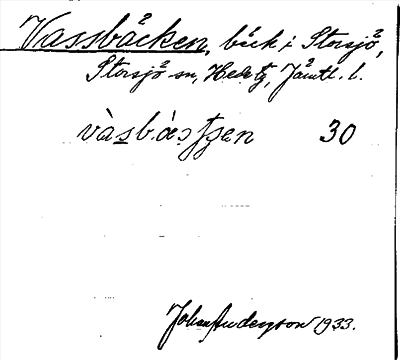 Vassbäcken, bäck i Storsjö,
Storsjö sn, Hede tg, Jämtl. l.
30
Johan Anderzson 1933.